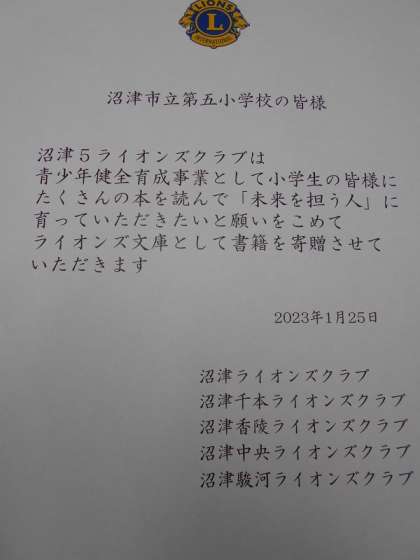 LIONS
L
INTERNATIONAL
沼津市立第五小学校の皆様
沼津5ライオンズクラブは
青少年健全育成事業として小学生の皆様に
たくさんの本を読んで「未来を担う人」に
育っていただきたいと願いをこめて
ライオンズ文庫として書籍を寄贈させて
いただきます
2023年1月25日
沼津ライオンズクラブ
沼津千本ライオンズクラブ
沼津香陵ライオンズクラブ
沼津中央ライオンズクラブ
沼津駿河ライオンズクラブ